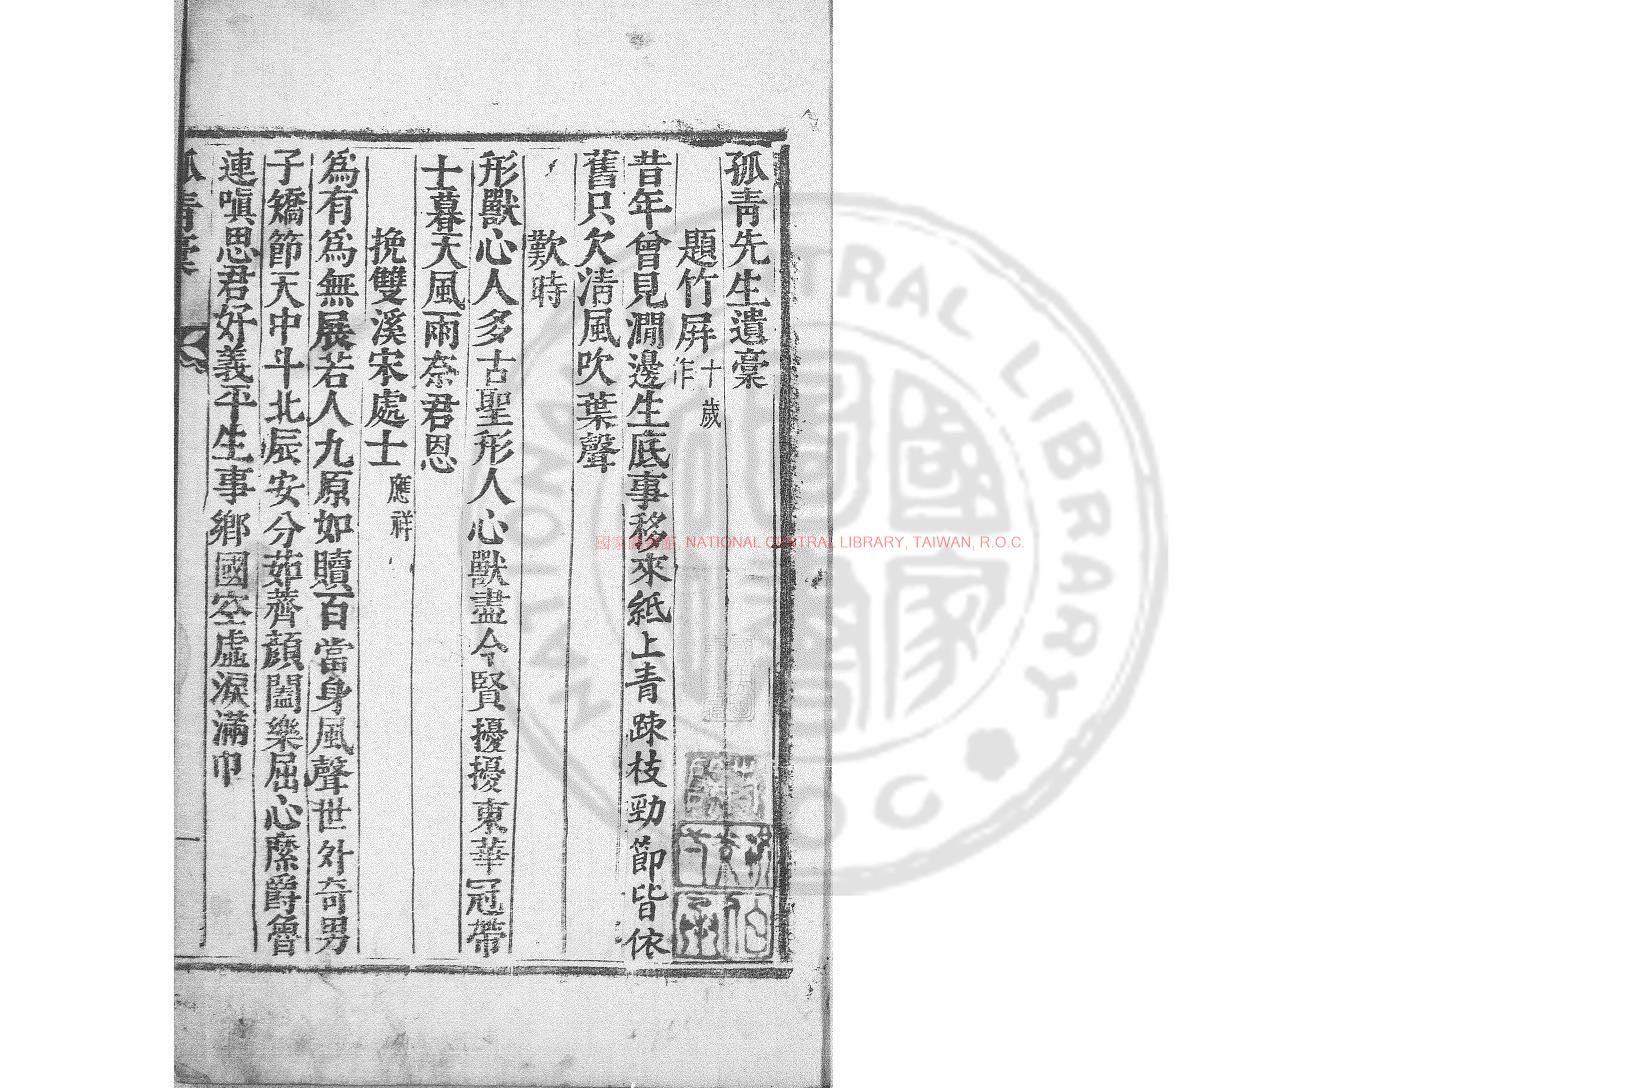 孤青先生遺稾
題竹屏十歲作
昔年曾見澗邊生底事移來紙上青疎枝勁節皆依
舊只欠清風吹葉聲
歎時
形獸心人多古聖形人心獸盡今賢擾擾東華冠帶
士暮天風雨奈君恩
挽雙溪宋處士應祥
為有為無展若人九原如贖百當身風聲世外奇男
子矯節天中斗北辰安分茹薺顏闔樂屈心縻爵魯
連嗔思君好義平生事鄉國空虛淚滿巾
孤青稾
一
國家圖書館, NATIONAL CENTRAL LIBRARY, TAIWAN, R.O.C.
NATIONAL CENTRAL LIBRARY
R.O.C.